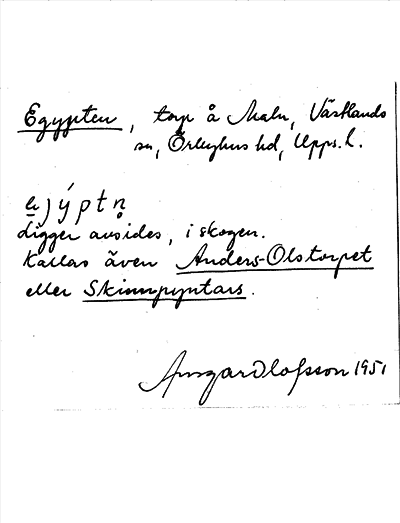 Egypten, torp å Maln, Västlands
sn, Örbyhus hd, Upps. l.
ejýptn̥
Ligger avsides, i skogen.
Kallas även Anders-Olstorpet
eller Skinnpyntars.
Ansgar Olofsson 1951